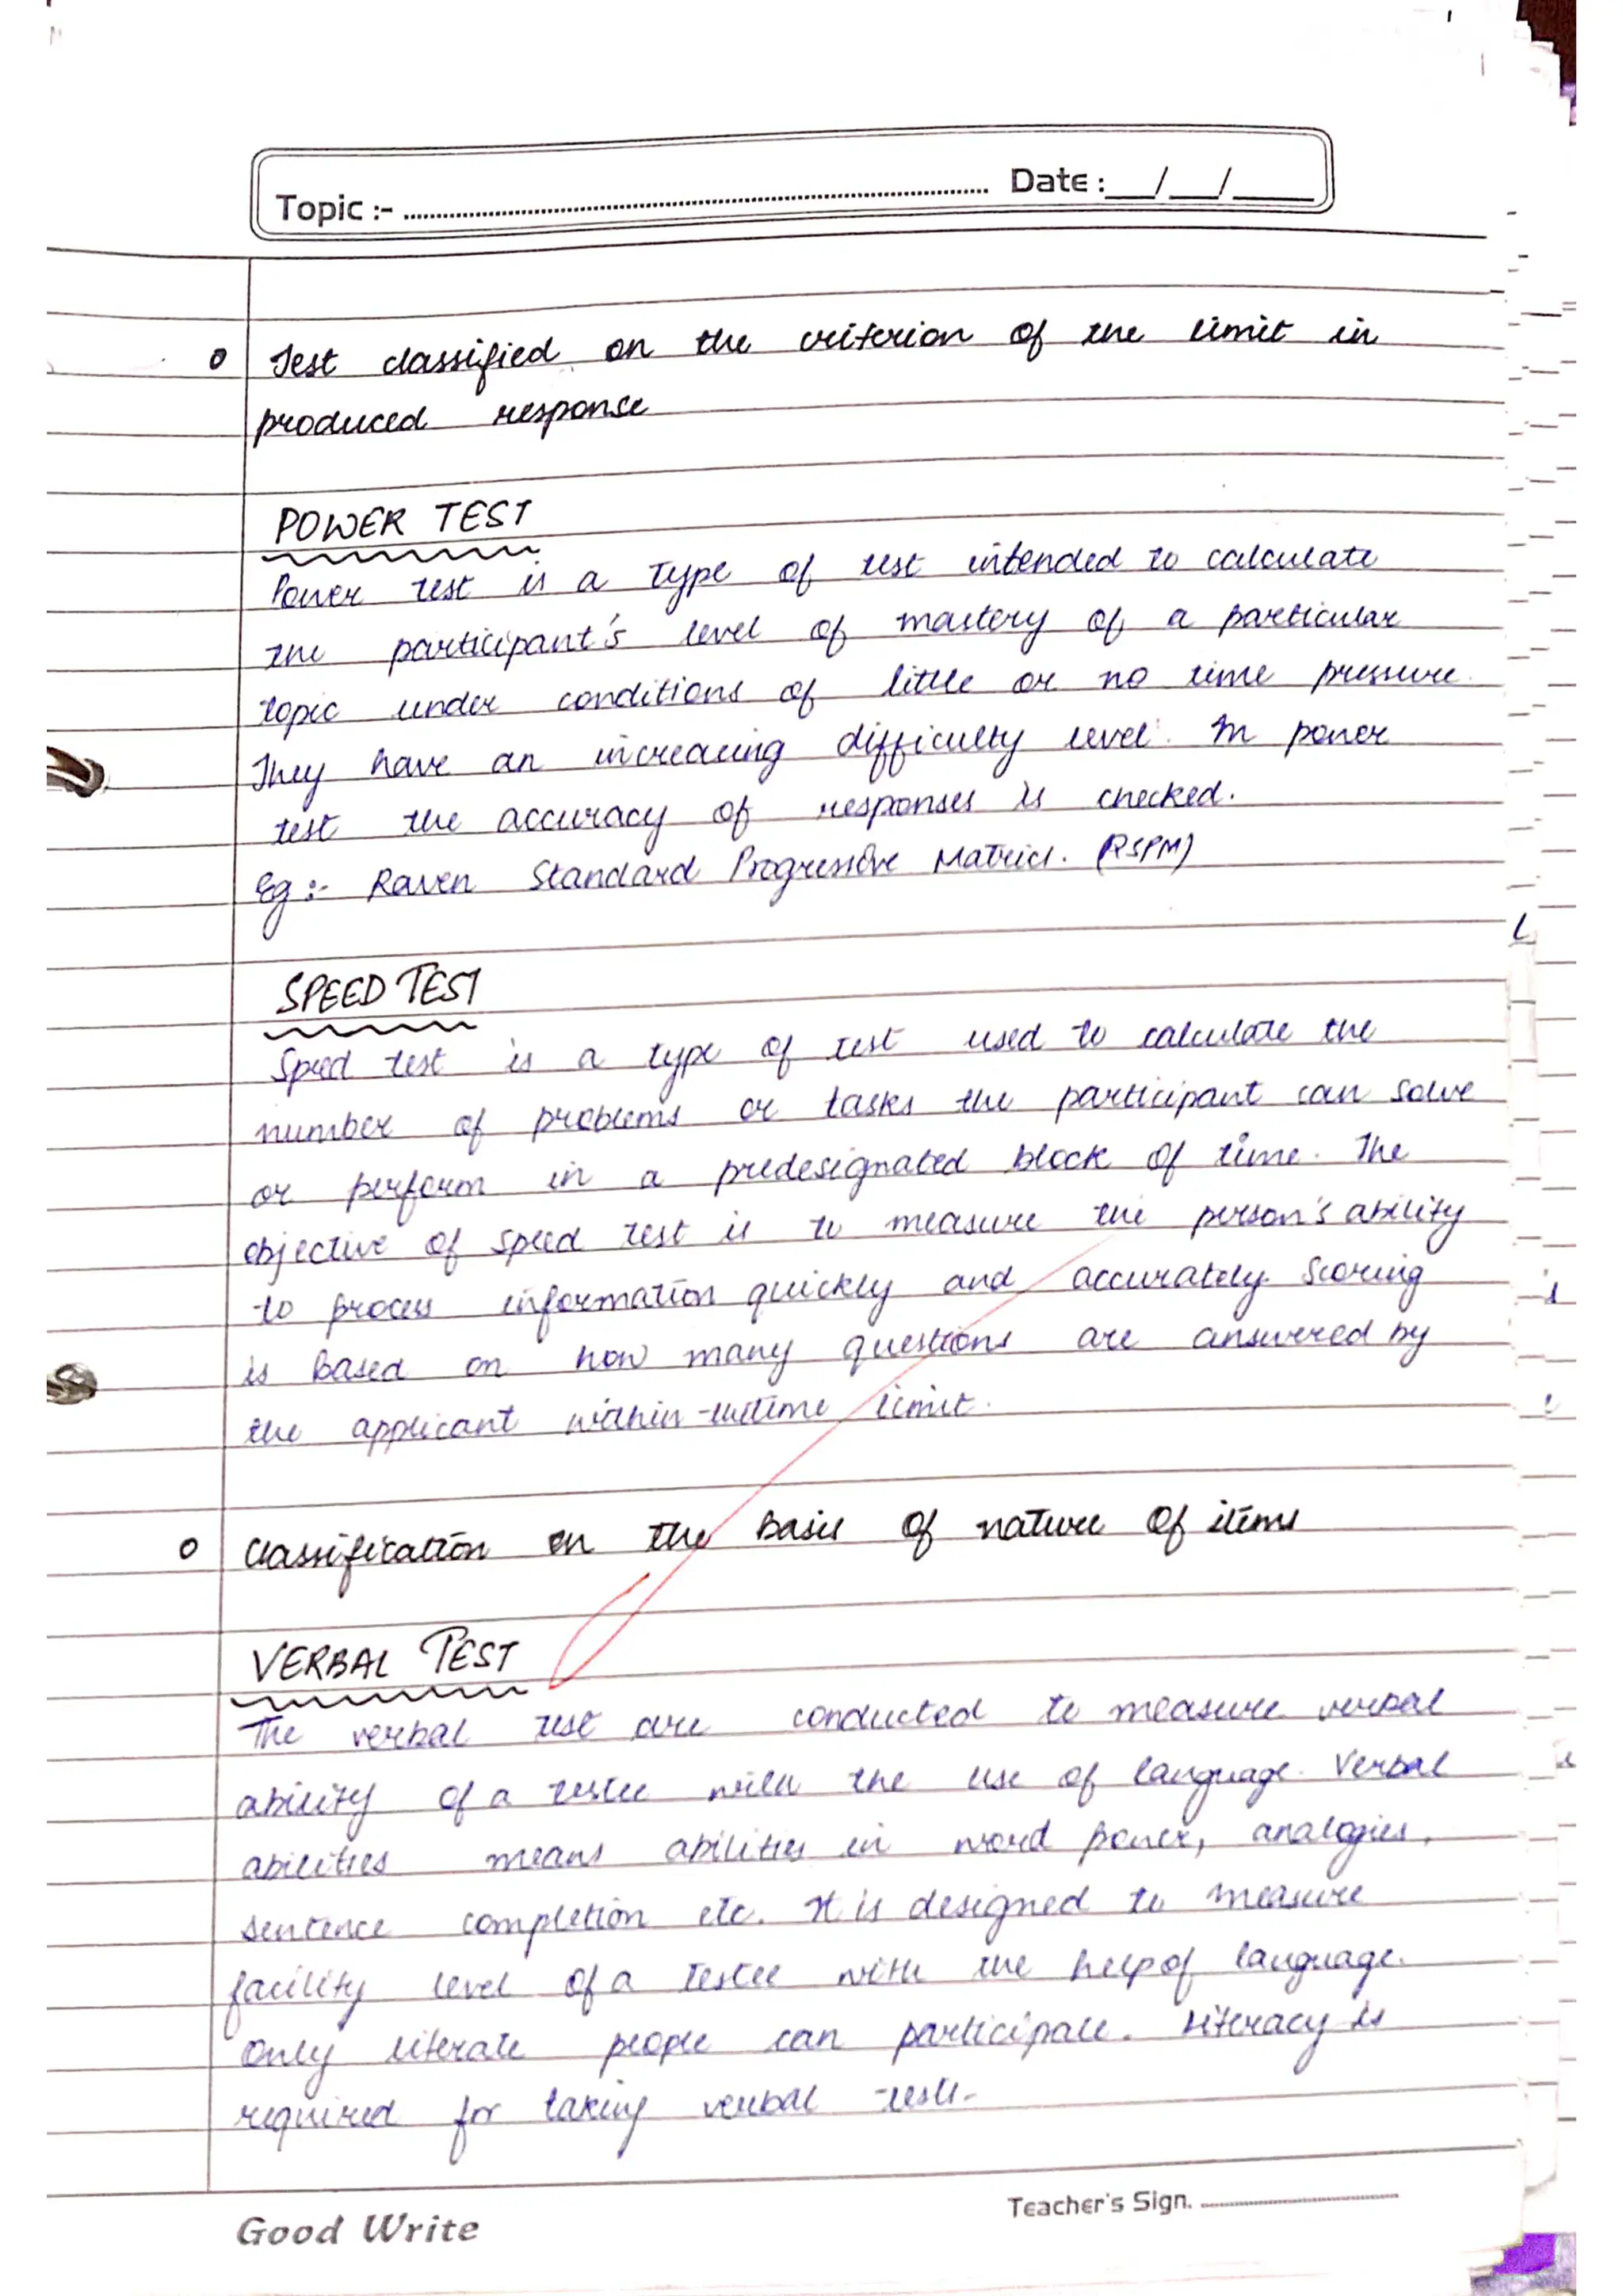 Topic :- Date : __/__/____
o Test classified on the criterion of the limit in
produced response
POWER TEST
Power test is a type of test intended to calculate
the participant's level of mastery of a particular
topic under conditions of little or no time pressure.
They have an increasing difficulty level. In power
test the accuracy of responses is checked.
Eg :- Raven Standard Progressive Matrics. (RSPM)
SPEED TEST
Speed test is a type of test used to calculate the
number of problems or tasks the participant can solve
or perform in a predesignated block of time. The
objective of speed test is to measure the person's ability
to process information quickly and accurately. Scoring
is based on how many questions are answered by
the applicant within the time limit.
o Classification on the basis of nature of items
VERBAL TEST
The verbal test are conducted to measure verbal
ability of a testee with the use of language. Verbal
abilities means abilities in word power, analogies,
sentence completion etc. It is designed to measure
facility level of a testee with the help of language.
Only literate people can participate. Literacy is
required for taking verbal tests.
Teacher's Sign.
Good Write